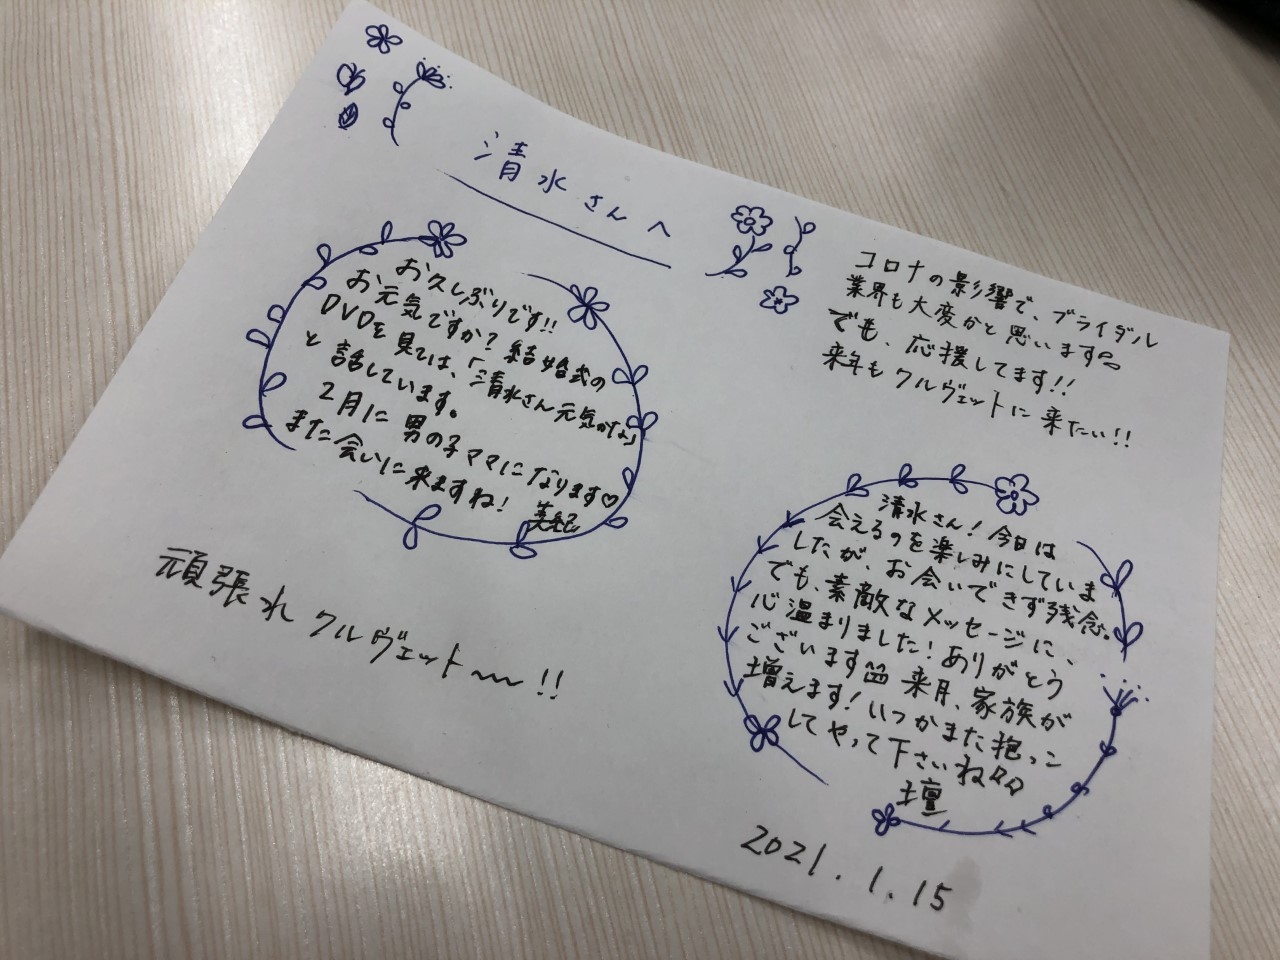 清水さんへ
お久しぶりです!!
お元気ですか? 結婚式の
DVDを見ては、「清水さん元気かな」
と話しています。
2月に男の子ママになります♡
また会いに来ますね!
美紀
頑張れクルヴェット〜〜!!
コロナの影響で、ブライダル
業界も大変かと思います
でも、応援してます!!
来年もクルヴェットに来たい!!
清水さん!今日は
会えるのを楽しみにしていま
したが、お会いできず残念。
でも、素敵なメッセージに、
心温まりました!ありがとう
ございます 来月、家族が
増えます!いつかまた抱っこ
してやって下さいね
壇
2021.1.15